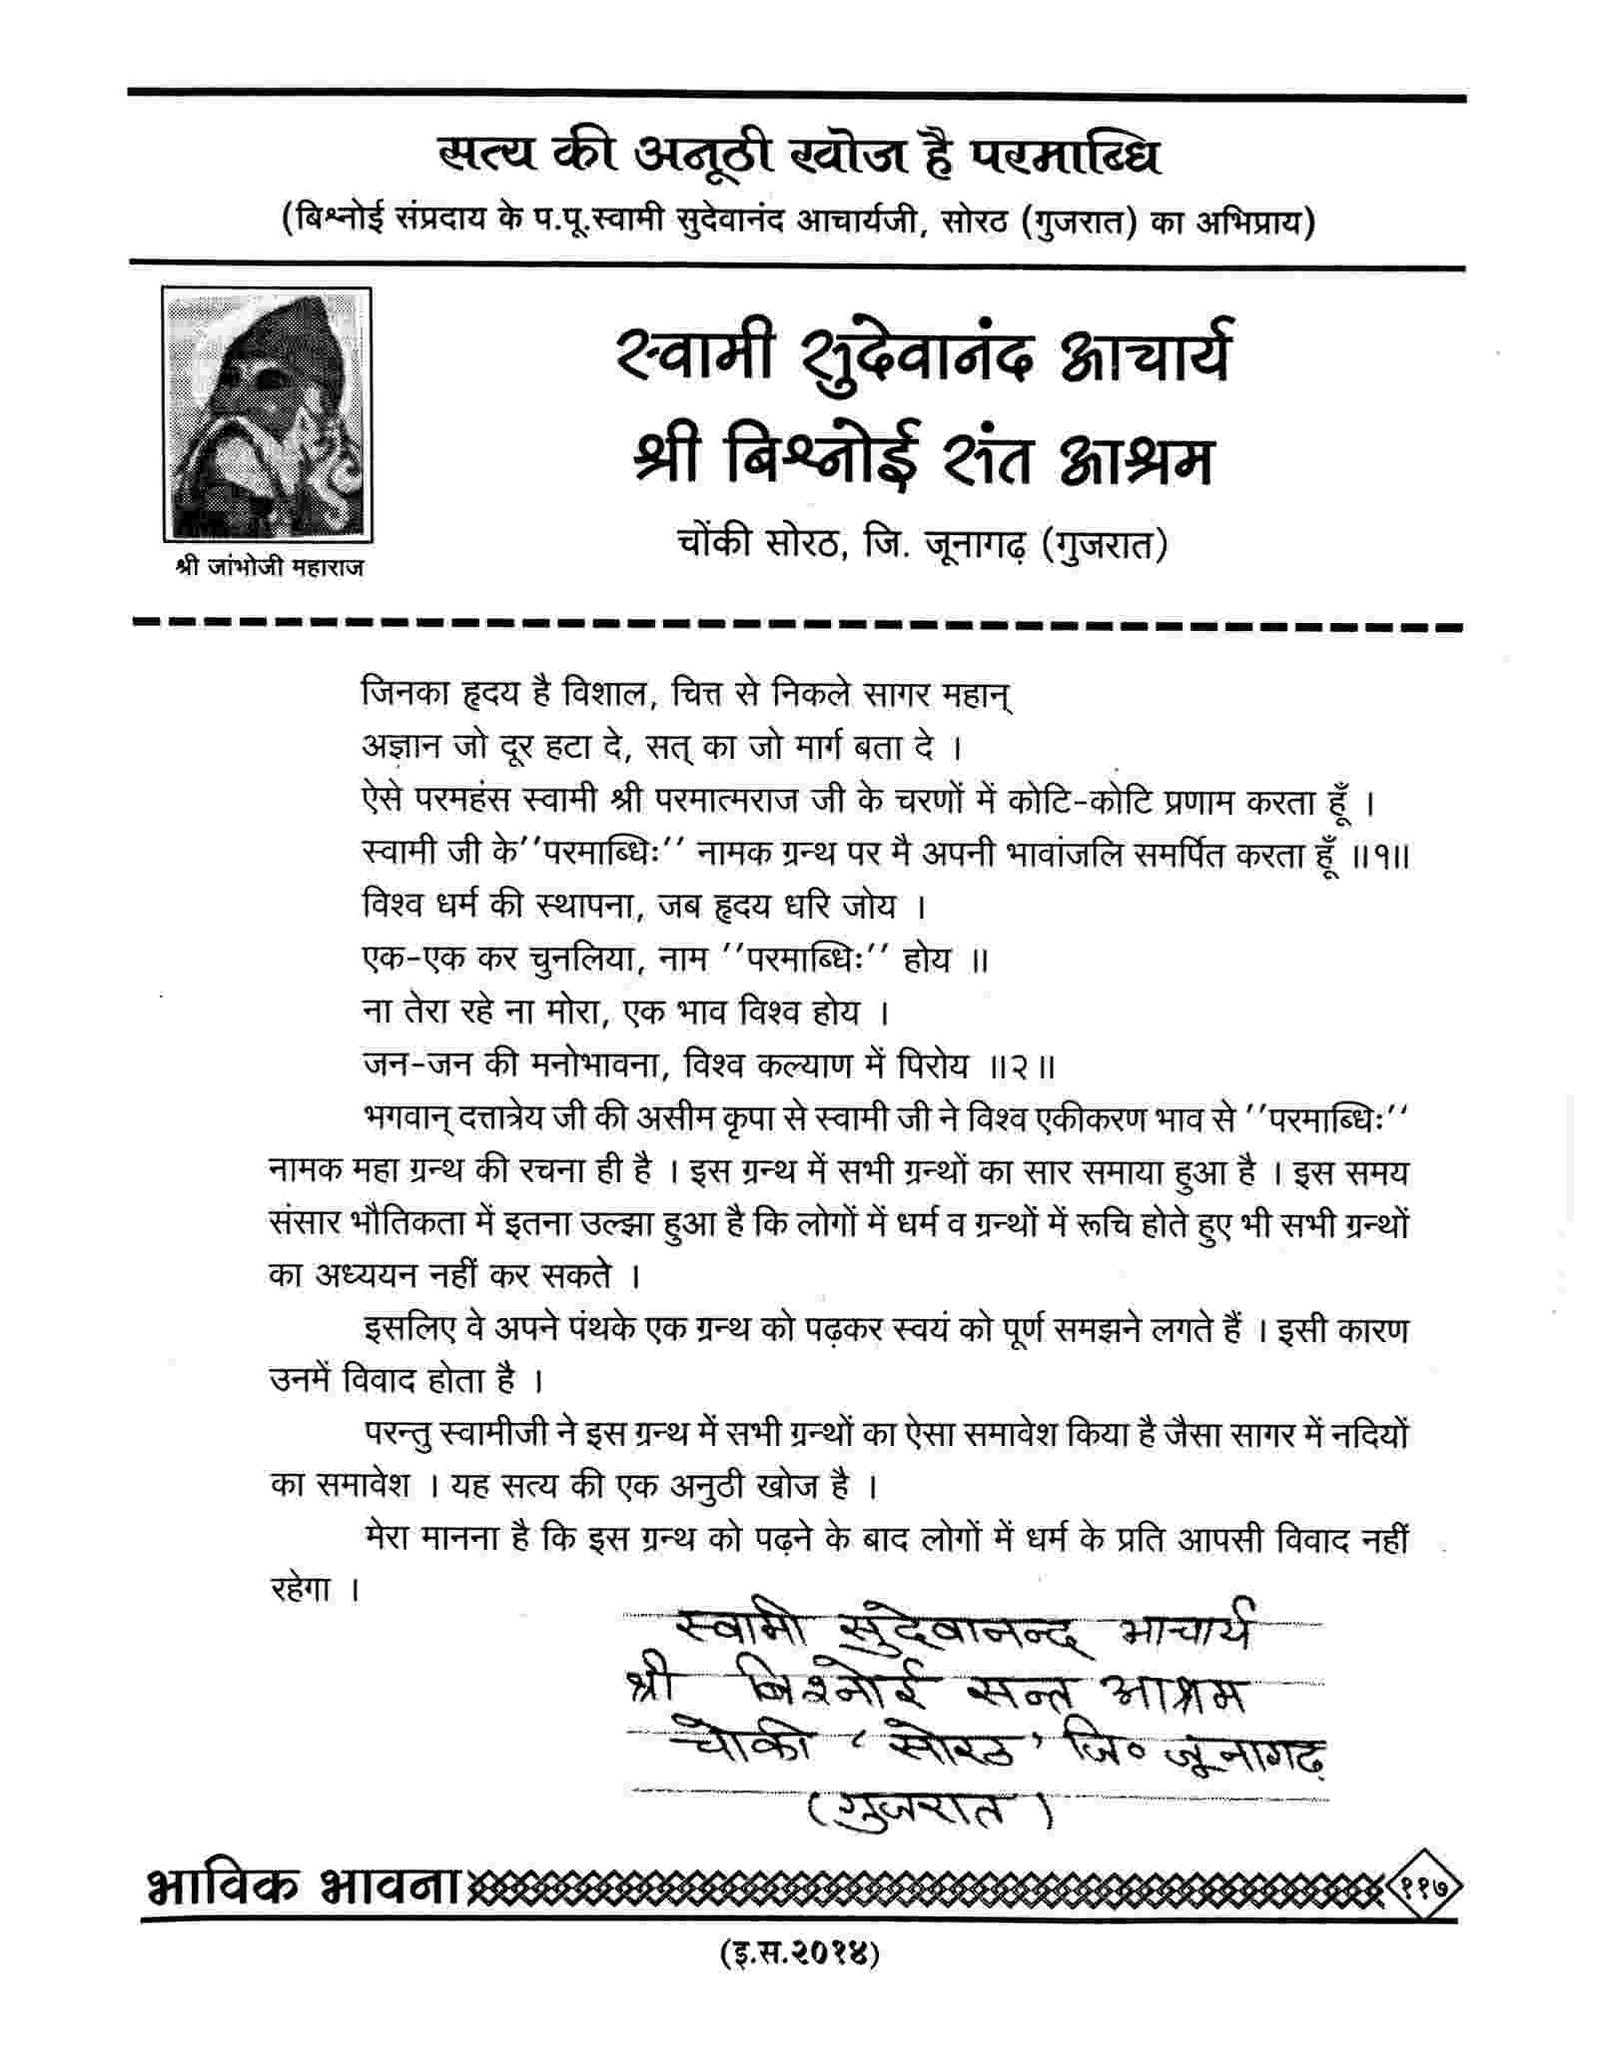 सत्य की अनूठी खोज है परमाब्धि
(बिश्नोई संप्रदाय के प.पू.स्वामी सुदेवानंद आचार्यजी, सोरठ (गुजरात) का अभिप्राय)
स्वामी सुदेवानंद आचार्य
श्री बिश्नोई संत आश्रम
चोंकी सोरठ, जि. जूनागढ़ (गुजरात)
श्री जांभोजी महाराज
जिनका हृदय है विशाल, चित्त से निकले सागर महान्
अज्ञान जो दूर हटा दे, सत् का जो मार्ग बता दे ।
ऐसे परमहंस स्वामी श्री परमात्मराज जी के चरणों में कोटि-कोटि प्रणाम करता हूँ ।
स्वामी जी के''परमाब्धिः'' नामक ग्रन्थ पर मै अपनी भावांजलि समर्पित करता हूँ ॥१॥
विश्व धर्म की स्थापना, जब हृदय धरि जोय ।
एक-एक कर चुनलिया, नाम ''परमाब्धिः'' होय ॥
ना तेरा रहे ना मोरा, एक भाव विश्व होय ।
जन-जन की मनोभावना, विश्व कल्याण में पिरोय ॥२॥
भगवान् दत्तात्रेय जी की असीम कृपा से स्वामी जी ने विश्व एकीकरण भाव से ''परमाब्धिः''
नामक महा ग्रन्थ की रचना ही है । इस ग्रन्थ में सभी ग्रन्थों का सार समाया हुआ है । इस समय
संसार भौतिकता में इतना उल्झा हुआ है कि लोगों में धर्म व ग्रन्थों में रूचि होते हुए भी सभी ग्रन्थों
का अध्ययन नहीं कर सकते ।
इसलिए वे अपने पंथके एक ग्रन्थ को पढ़कर स्वयं को पूर्ण समझने लगते हैं । इसी कारण
उनमें विवाद होता है ।
परन्तु स्वामीजी ने इस ग्रन्थ में सभी ग्रन्थों का ऐसा समावेश किया है जैसा सागर में नदियों
का समावेश । यह सत्य की एक अनुठी खोज है ।
मेरा मानना है कि इस ग्रन्थ को पढ़ने के बाद लोगों में धर्म के प्रति आपसी विवाद नहीं
रहेगा ।
स्वामी सुदेवानन्द आचार्य
श्री बिश्नोई सन्त आश्रम
चोकी 'सोरठ' जि० जूनागढ़
(गुजरात)
भाविक भावना ११७
(इ.स.२०१४)